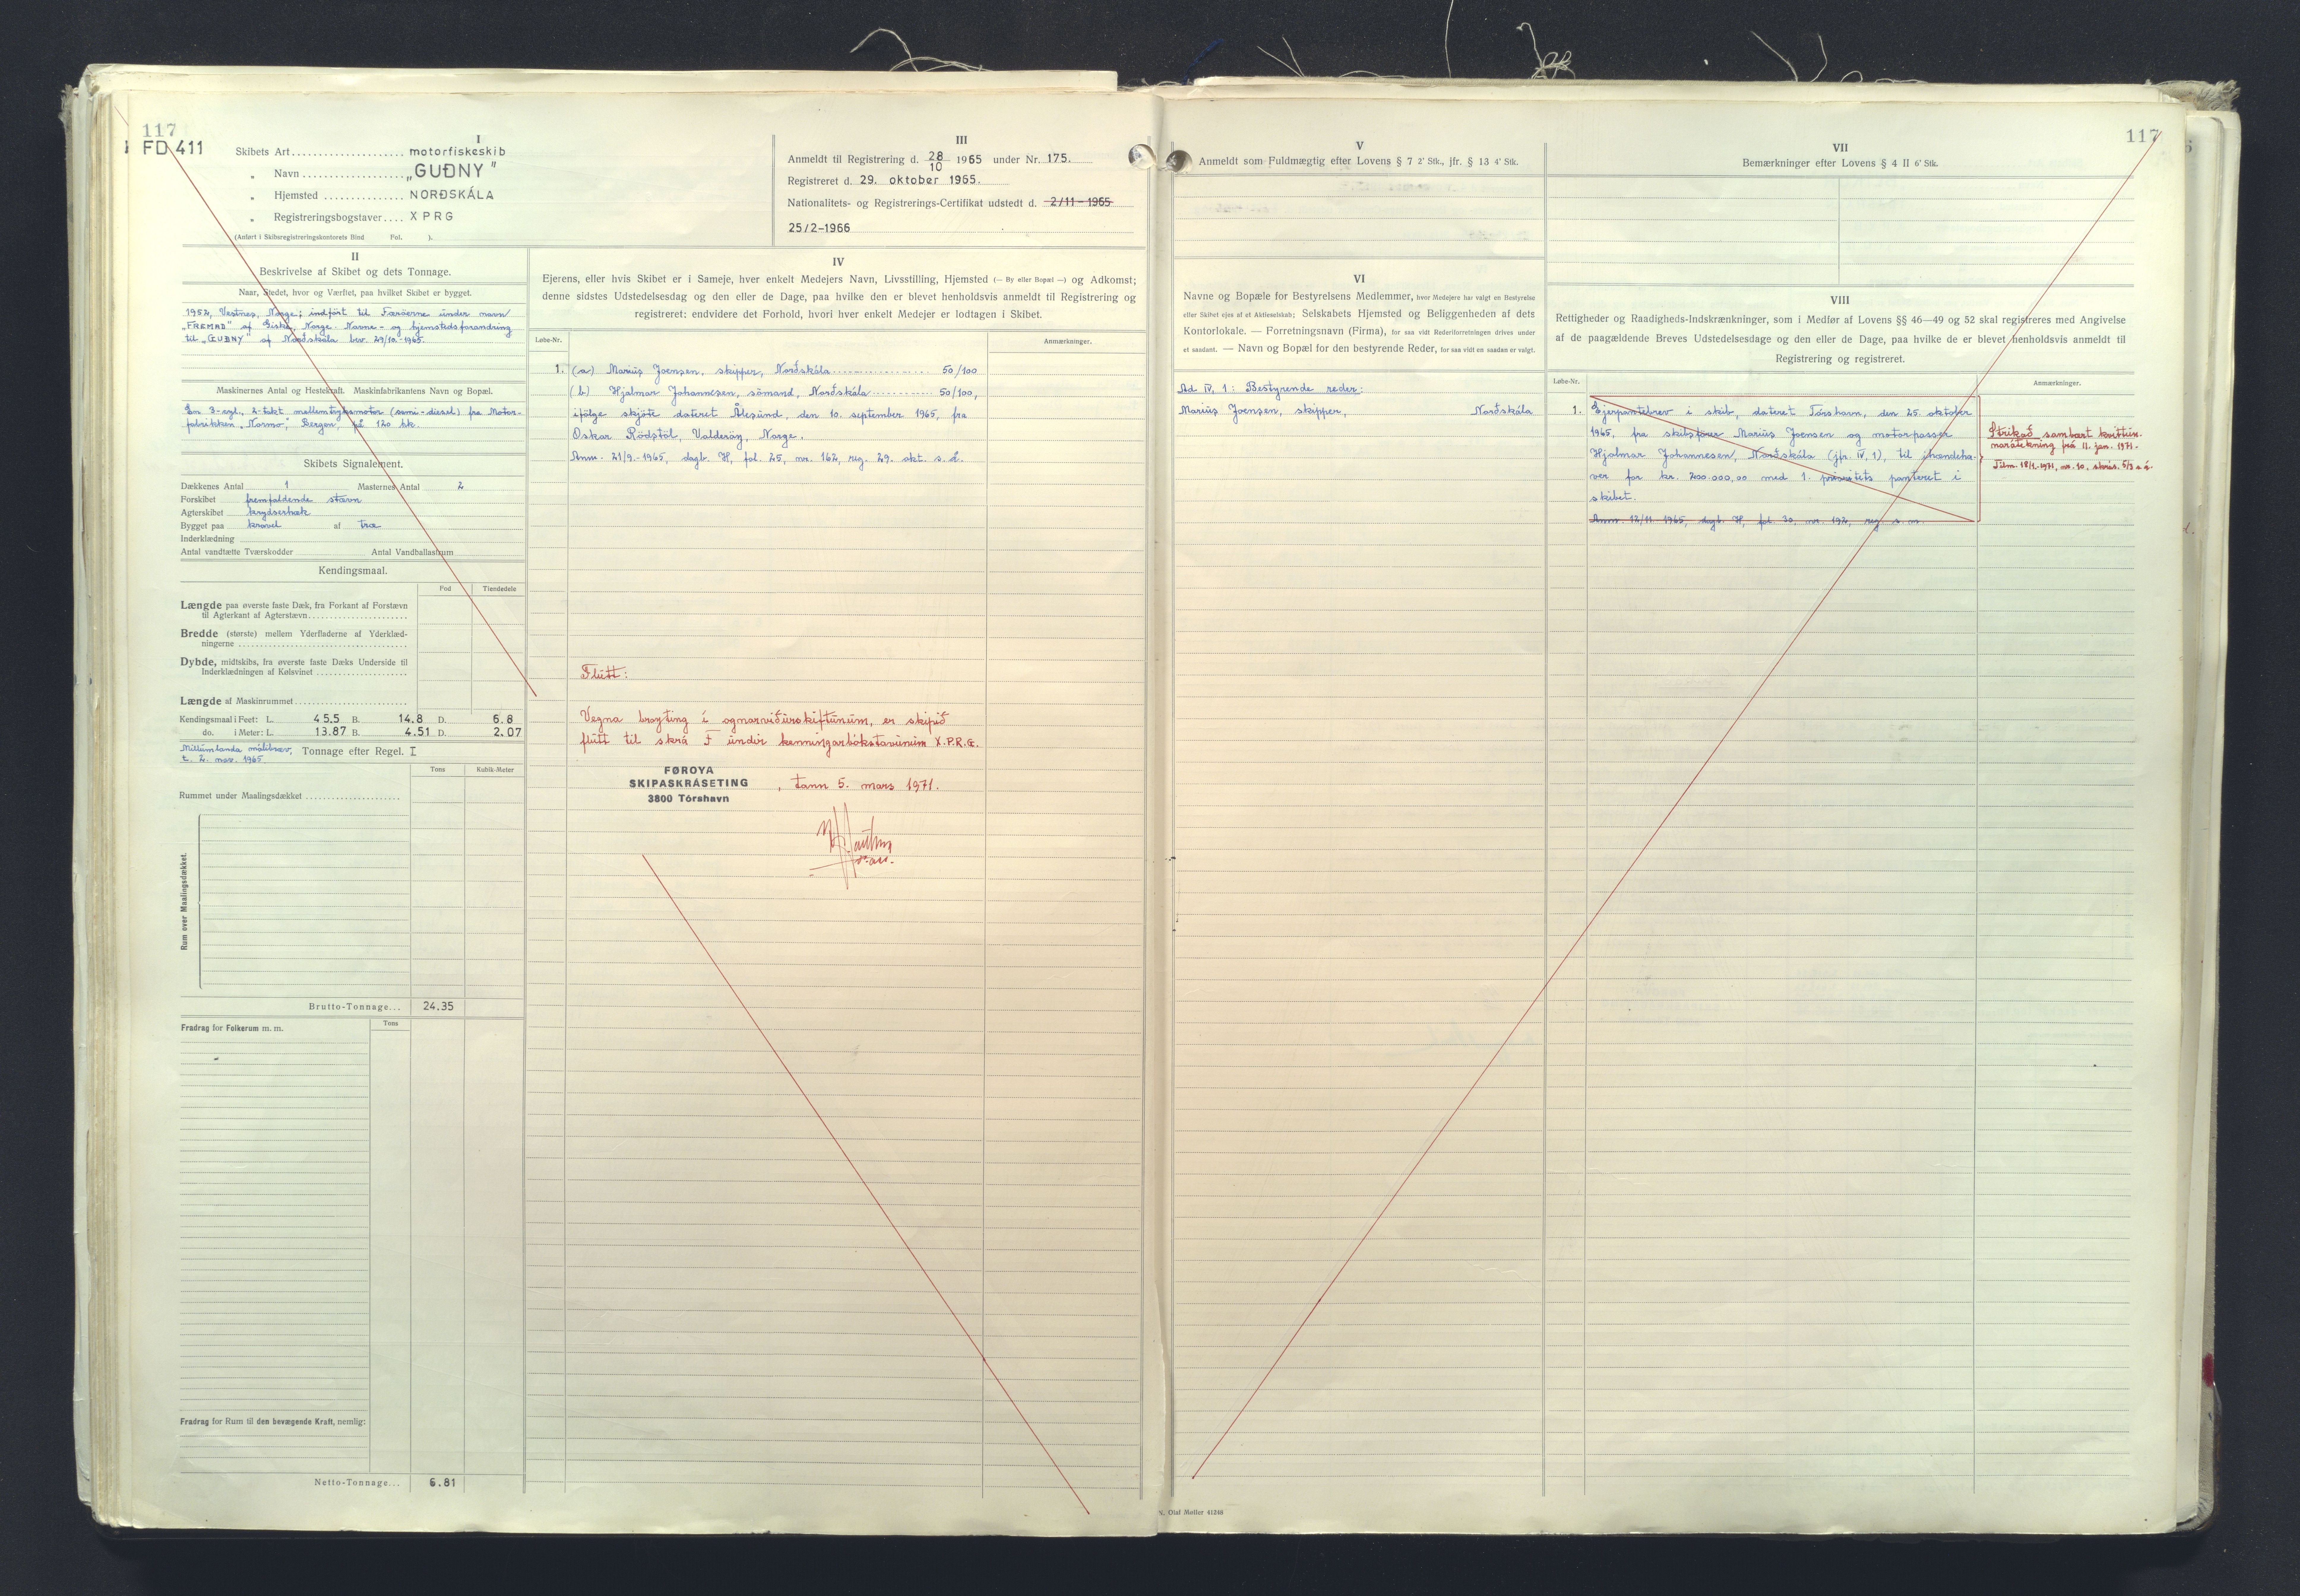 117
FD 411
I
Skibets Art.................... motorfiskeskib
„ Navn ................... „GUÐNY"
„ Hjemsted ............... NORÐSKÁLA
„ Registreringsbogstaver.... XPRG
(Anført i Skibsregistreringskontorets Bind Fol. ).
III
Anmeldt til Registrering d. 28/10 1965 under Nr. 175.
Registreret d. 29. oktober 1965.
Nationalitets- og Registrerings-Certifikat udstedt d. 2/11-1965
25/2-1966
II
Beskrivelse af Skibet og dets Tonnage.
Naar, Stedet, hvor og Værftet, paa hvilket Skibet er bygget.
1952, Vestnes, Norge; indført til Færøerne under navn
„FREMAD" af Giske, Norge. Navne- og hjemstedsforandring
til „GUÐNY" af Norðskála bev. 29/10-1965.
Maskinernes Antal og Hestekraft. Maskinfabrikantens Navn og Bopæl.
En 3-cyl., 2-takt mellemtryksmotor (semi-diesel) fra Motor-
fabrikken „Normo", Bergen, på 120 hk.
Skibets Signalement.
Dækkenes Antal 1 Masternes Antal 2
Forskibet fremfaldende stævn
Agterskibet krydserhæk
Bygget paa kravel af træ
Inderklædning
Antal vandtætte Tværskodder Antal Vandballasttum
Kendingsmaal.
Fod Tiendedele
Længde paa øverste faste Dæk, fra Forkant af Forstævn
til Agterkant af Agterstævn
Bredde (største) mellem Yderfladerne af Yderklæd-
ningerne
Dybde, midtskibs, fra øverste faste Dæks Underside til
Inderklædningen af Kølsvinet
Længde af Maskinrummet
Kendingsmaal i Feet: L. 45.5 B. 14.8 D. 6.8
do. i Meter: L. 13.87 B. 4.51 D. 2.07
Millumlanda málibræv, Tonnage efter Regel. I
t. 2. nov. 1965
Tons Kubik-Meter
Rummet under Maalingsdækket
Rum over Maalingsdækket.
Brutto-Tonnage... 24.35
Fradrag for Folkerum m. m. Tons
Fradrag for Rum til den bevægende Kraft, nemlig:
Netto-Tonnage... 6.81
IV
Ejerens, eller hvis Skibet er i Sameje, hver enkelt Medejers Navn, Livsstilling, Hjemsted (— By eller Bopæl —) og Adkomst;
denne sidstes Udstedelsesdag og den eller de Dage, paa hvilke den er blevet henholdsvis anmeldt til Registrering og
registreret: endvidere det Forhold, hvori hver enkelt Medejer er lodtagen i Skibet.
Løbe-Nr. Anmærkninger.
1. (a) Marius Joensen, skipper, Norðskála.................... 50/100
(b) Hjalmar Johannesen, sömand, Norðskála............ 50/100,
ifölge skjöte dateret Ålesund, den 10. september 1965, fra
Oskar Rödstöl, Valderöy, Norge.
Anm. 21/9.-1965, dagb. H, fol. 25, nr. 162, reg. 29. okt. s. å.
Flutt:
Vegna broyting í ognarviðurskiftunum, er skipið
flutt til skrá F undir kenningarbókstavunum X.P.R.G.
FØROYA
SKIPASKRÁSETING
3800 Tórshavn
, tann 5. mars 1971.
V
Anmeldt som Fuldmægtig efter Lovens § 7 2' Stk., jfr. § 13 4' Stk.
VI
Navne og Bopæle for Bestyrelsens Medlemmer, hvor Medejere har valgt en Bestyrelse
eller Skibet ejes af et Aktieselskab; Selskabets Hjemsted og Beliggenheden af dets
Kontorlokale. — Forretningsnavn (Firma), for saa vidt Rederiforretningen drives under
et saadant. — Navn og Bopæl for den bestyrende Reder, for saa vidt en saadan er valgt.
Ad IV, 1: Bestyrende reder:
Marius Joensen, skipper, Norðskála
117
VII
Bemærkninger efter Lovens § 4 II 6' Stk.
VIII
Rettigheder og Raadigheds-Indskrænkninger, som i Medfør af Lovens §§ 46—49 og 52 skal registreres med Angivelse
af de paagældende Breves Udstedelsesdage og den eller de Dage, paa hvilke de er blevet henholdsvis anmeldt til
Registrering og registreret.
Løbe-Nr. Anmærkninger.
1. Ejerpantebrev i skib, dateret Tórshavn, den 25. oktober
1965, fra skibsfører Marius Joensen og motorpasser
Hjalmar Johannesen, Norðskála (jfr. IV, 1), til ihændeha-
ver for kr. 200.000,00 med 1. prioritets panteret i
skibet.
Anm. 12/11 1965, dagb. H, fol. 30, nr. 192, reg. s. m.
Strikað sambært kvittun-
narátekning frá 11. jan. 1971.
Tilm. 18/1-1971, nr. 10, skrás. 5/3 s. á.
N. Olaf Møller 41248